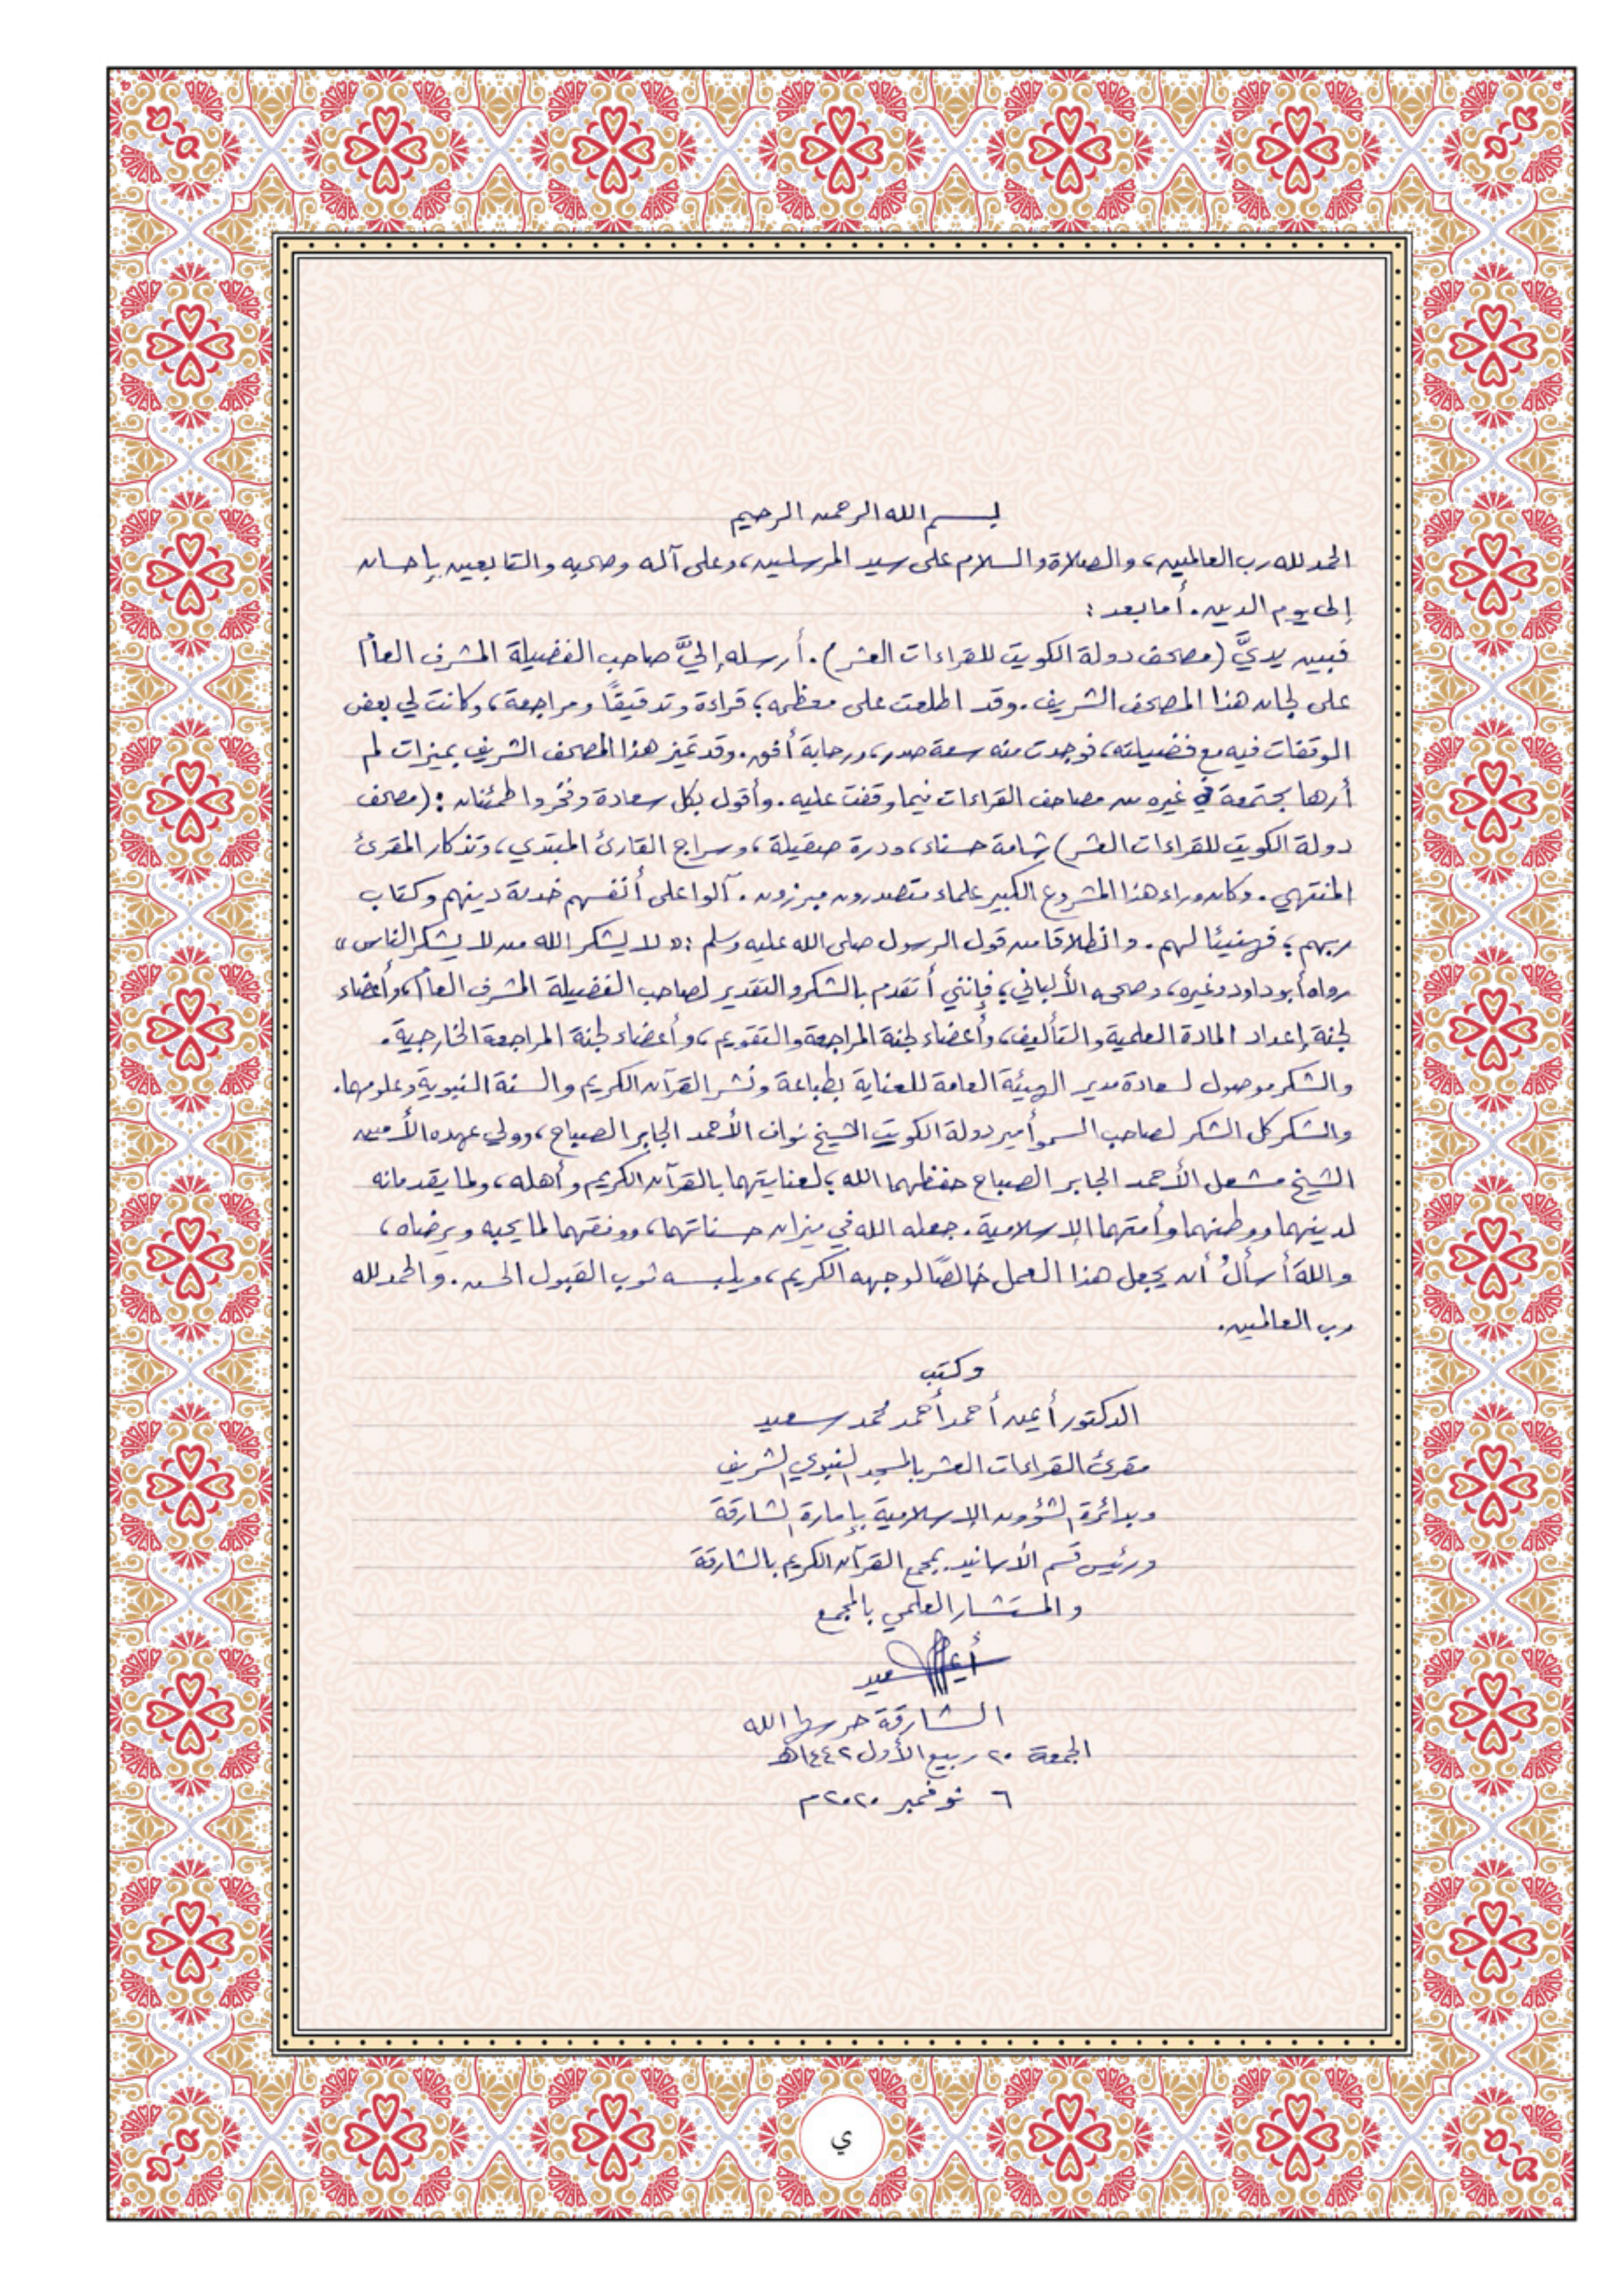 بسم الله الرحمن الرحيم
الحمد لله رب العالمين، والصلاة والسلام على سيد المرسلين، وعلى آله وصحبه والتابعين بإحسان
إلى يوم الدين. أما بعد :
فبين يديَّ (مصحف دولة الكويت للقراءات العشر). أرسله إليَّ صاحب الفضيلة المشرف العام
على لجان هذا المصحف الشريف. وقد اطلعت على معظمه؛ قراءة وتدقيقًا ومراجعة، وكانت لي بعض
الوقفات فيه مع فضيلته، فوجدت منه سعة صدر، ورحابة أفق. وقد تميز هذا المصحف الشريف بميزات لم
أرها مجتمعة في غيره من مصاحف القراءات فيما وقفت عليه. وأقول بكل سعادة وفخر واطمئنان : (مصحف
دولة الكويت للقراءات العشر) شامة حسناء، ودرة صقيلة، وسراج القارئ المبتدي، وتذكار المقرئ
المنتهي. وكان وراء هذا المشروع الكبير علماء متصدرون مبرزون. آلوا على أنفسهم خدمة دينهم وكتاب
ربهم؛ فهنيئا لهم. وانطلاقا من قول الرسول صلى الله عليه وسلم : « لا يشكر الله من لا يشكر الناس »
رواه أبو داود وغيره، وصححه الألباني؛ فإنني أتقدم بالشكر والتقدير لصاحب الفضيلة المشرف العام، وأعضاء
لجنة إعداد المادة العلمية والتأليف، وأعضاء لجنة المراجعة والتقويم، وأعضاء لجنة المراجعة الخارجية.
والشكر موصول لسعادة مدير الهيئة العامة للعناية بطباعة ونشر القرآن الكريم والسنة النبوية وعلومها.
والشكر كل الشكر لصاحب السمو أمير دولة الكويت الشيخ نواف الأحمد الجابر الصباح، وولي عهده الأمين
الشيخ مشعل الأحمد الجابر الصباح حفظهما الله؛ لعنايتهما بالقرآن الكريم وأهله، ولما يقدمانه
لدينهما ووطنهما وأمتهما الإسلامية. جعله الله في ميزان حسناتهما، ووفقهما لما يحبه ويرضاه،
واللهَ أسألُ أن يجعل هذا العمل خالصًا لوجهه الكريم، ويلبسه ثوب القبول الحسن. والحمد لله
رب العالمين.
وكتب
الدكتور أيمن أحمد أحمد محمد سعيد
مقرئ القراءات العشر بالمسجد النبوي الشريف
وبدائرة الشؤون الإسلامية بإمارة الشارقة
ورئيس قسم الأسانيد بمجمع القرآن الكريم بالشارقة
والمستشار العلمي بالمجمع
أيمن سعيد
الشارقة حرسها الله
الجمعة ٢٠ ربيع الأول ١٤٤٢هـ
٦ نوفمبر ٢٠٢٠م
ي